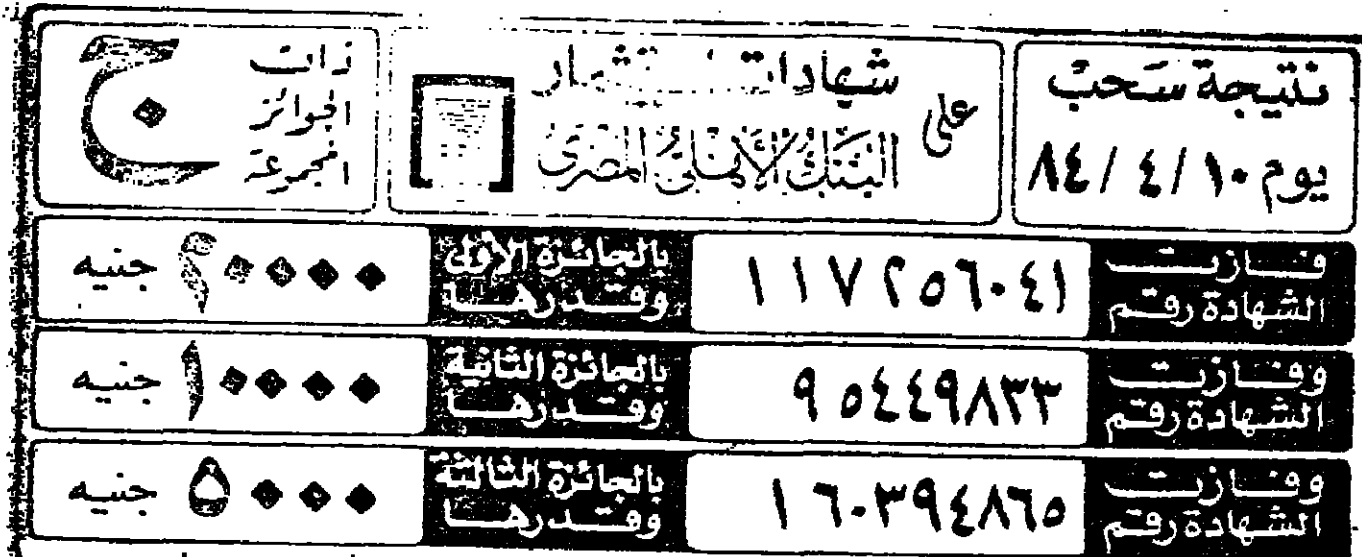 نتيجة سحب
يوم ١٠ / ٤ / ٨٤
على
شهادات استثمار
البنك الأهلى المصرى
ذات
الجوائز
المجموعة
ج
فازت
الشهادة رقم
١١٧٢٥٦٠٤١
بالجائزة الأولى
وقدرها
٢٠٠٠٠ جنيه
وفازت
الشهادة رقم
٩٥٤٤٩٨٣٣
بالجائزة الثانية
وقدرها
١٠٠٠٠ جنيه
وفازت
الشهادة رقم
١٦٠٣٩٤٨٦٥
بالجائزة الثالثة
وقدرها
٥٠٠٠ جنيه